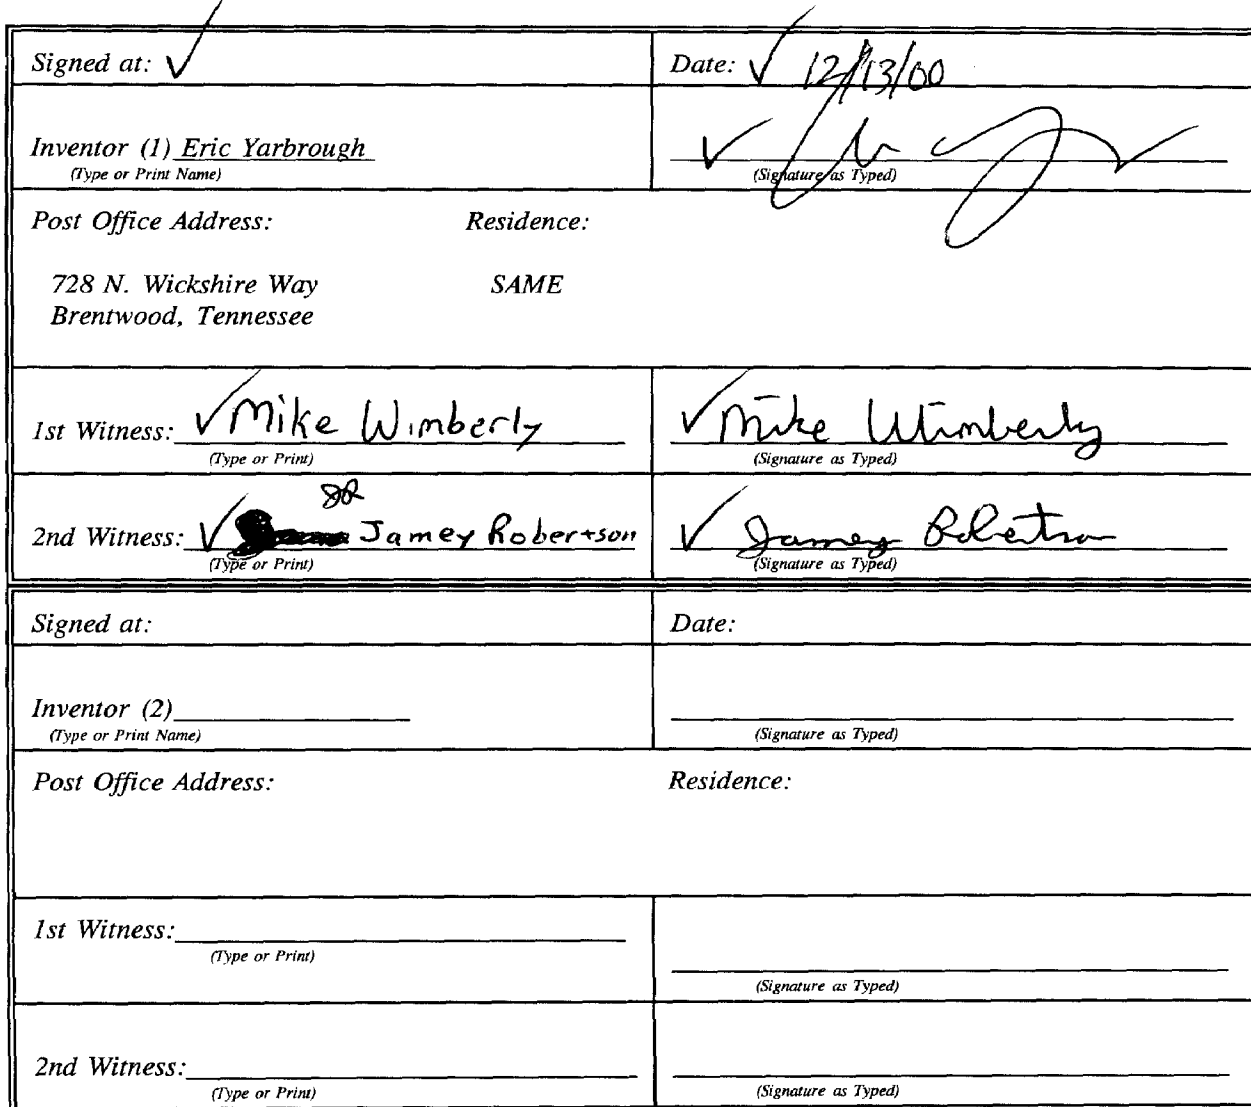 Signed at: Date: 12/13/00
Inventor (1) Eric Yarbrough
(Type or Print Name) (Signature as Typed)
Post Office Address: Residence:
728 N. Wickshire Way SAME
Brentwood, Tennessee
1st Witness: Mike Wimberly Mike Wimberly
(Type or Print) (Signature as Typed)
JR
2nd Witness: Jamey Robertson Jamey Robertson
(Type or Print) (Signature as Typed)
Signed at: Date:
Inventor (2)
(Type or Print Name) (Signature as Typed)
Post Office Address: Residence:
1st Witness:
(Type or Print)
(Signature as Typed)
2nd Witness:
(Type or Print) (Signature as Typed)